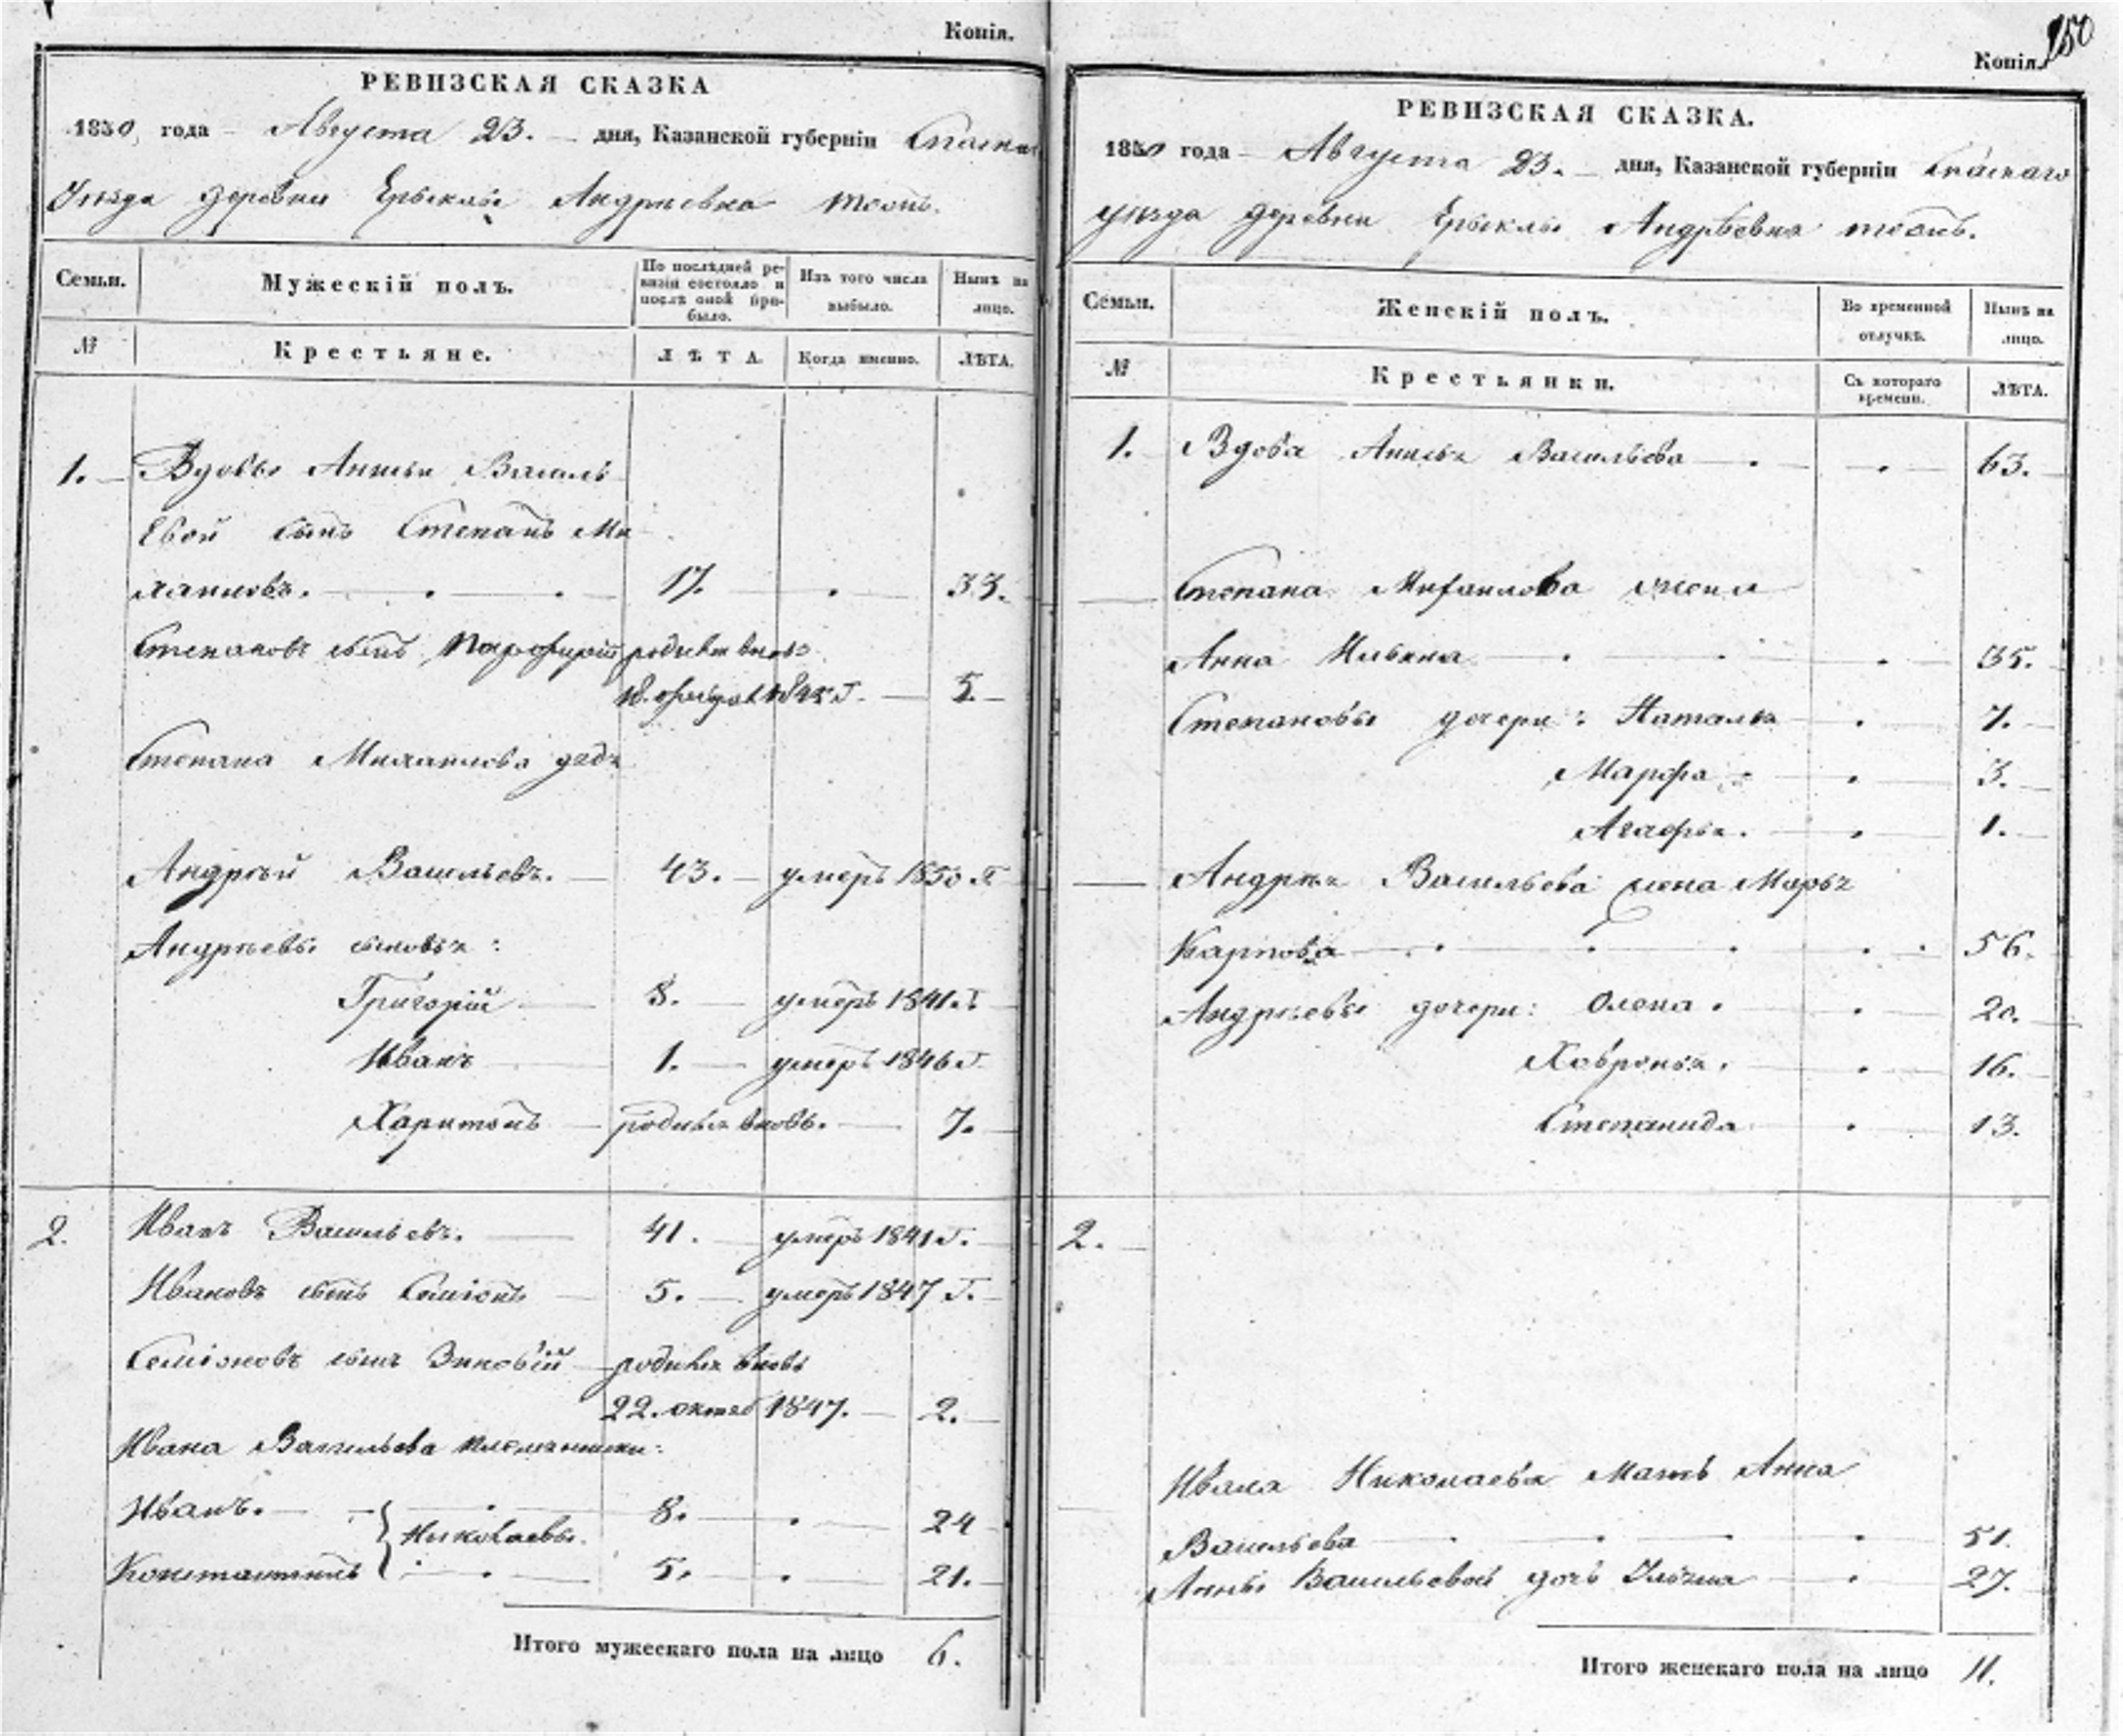 Копія.
РЕВИЗСКАЯ СКАЗКА
1850 года Августа 23. дня, Казанской губерніи Спаскаго
Уѣзда деревни Ерыклы Андреевка тожъ.
Семьи. Мужескій полъ. По послѣдней ревизіи состояло и послѣ оной прибыло. Изъ того числа выбыло. Нынѣ на лицо.
№ Крестьяне. ЛѢТА. Когда именно. ЛѢТА.
1. Вдовы Анисьи Василь
евой сынъ Степанъ Ми
хаиловъ. 17. 33.
Степановъ сынъ Порфирій родился вновь
18. 5.
Степана Михаилова дядя
Андрѣй Васильевъ. 43. умеръ 1850 Г.
Андрѣевы сыновья:
Григорій 8. умеръ 1841 Г.
Иванъ 1. умеръ 1846 Г.
Харитонъ родился вновь. 7.
2. Иванъ Васильевъ. 41. умеръ 1841 Г.
Ивановъ сынъ Семіонъ 5. умеръ 1847 Г.
Семіоновъ сынъ Зиновій родился вновь
22. октяб 1847. 2.
Ивана Васильева племянники:
Иванъ. 8. 24
Николаевы.
Константинъ 5. 21.
Итого мужескаго пола на лицо 6.
150
Копія.
РЕВИЗСКАЯ СКАЗКА.
1850 года Августа 23. дня, Казанской губерніи Спаскаго
уѣзда деревни Ерыклы Андрѣевка тожъ.
Семьи. Женскій полъ. Во временной отлучкѣ. Нынѣ на лицо.
№ Крестьянки. Съ котораго времени. ЛѢТА.
1. Вдова Анисья Васильева 63.
Степана Михаилова жена
Анна Ильина 35.
Степановы дочери: Наталья 7.
Марфа 3.
Агафья. 1.
Андрея Васильева жена Марья
Карпова 56.
Андрѣевы дочери: Олена. 20.
Хавронья. 16.
Степанида 13.
2.
Ивана Николаева Мать Анна
Васильева 51.
Анны Васильевой дочь 27.
Итого женскаго пола на лицо 11.